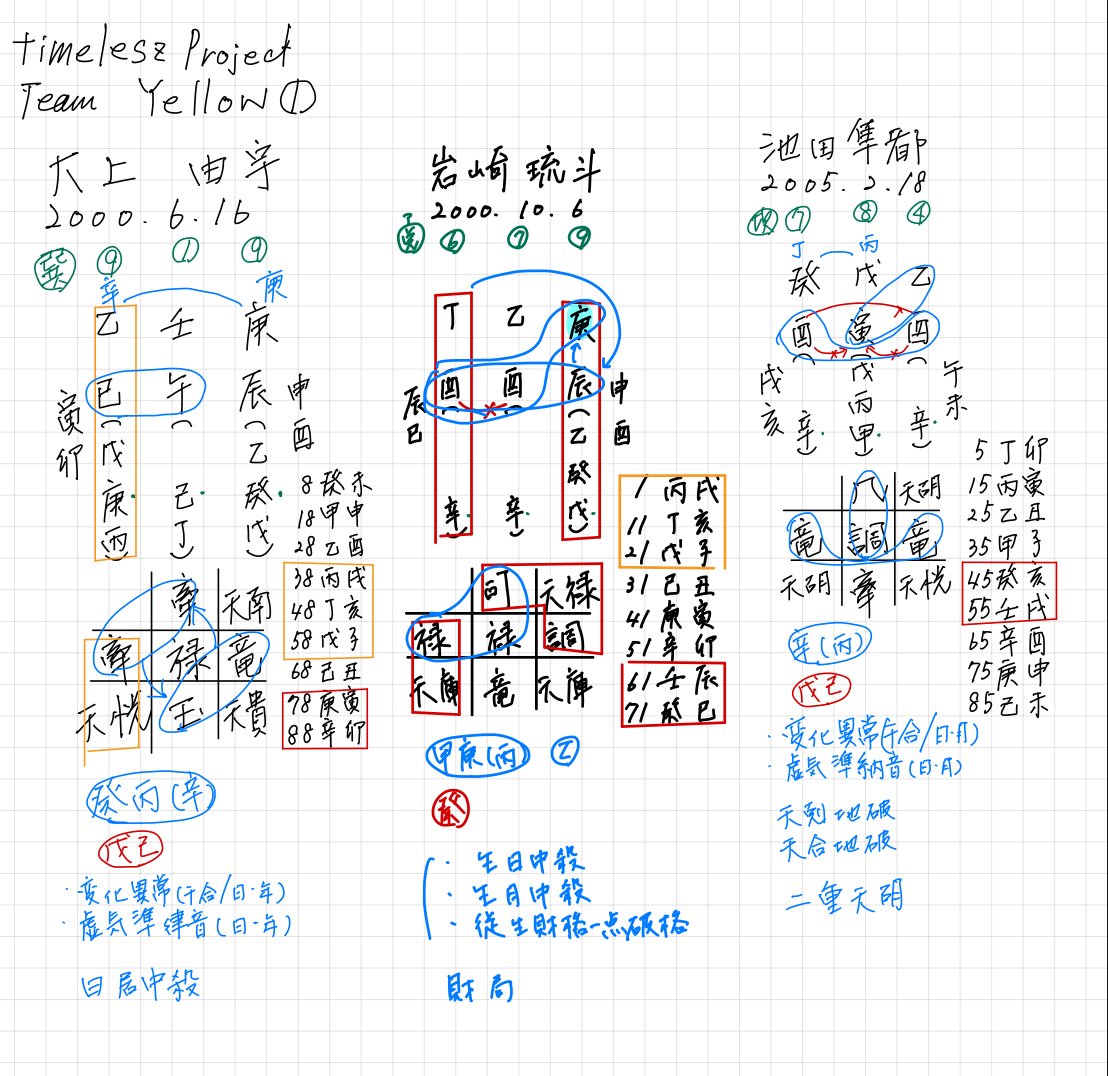 timelesz Project
Team Yellow①
大上 由宇
2000.6.16
巽 ⑨ ① ⑨
辛 庚
乙 壬 庚
巳 午 辰
寅卯
申酉
戊 乙
庚 己 癸
丙 丁 戊
8 癸未
18 甲申
28 乙酉
38 丙戌
48 丁亥
58 戊子
68 己丑
78 庚寅
88 辛卯
牽 天南
牽 禄 竜
天恍 玉 天貴
癸丙(辛)
戊己
・変化異常(干合/日・年)
・虚気準律音(日・年)
日居中殺
岩崎 琉斗
2000.10.6
⑥ ⑦ ⑨
丁 乙 庚
酉 酉 辰
辰巳
申酉
乙
癸
辛 辛 戊
1 丙戌
11 丁亥
21 戊子
31 己丑
41 庚寅
51 辛卯
61 壬辰
71 癸巳
司 天禄
禄 禄 調
天庫 竜 天庫
甲庚(丙) 乙
癸
・生日中殺
・生月中殺
・従生財格一点破格
財局
池田隼都
2005.2.18
坎 ⑦ ⑧ ④
丁 丙
癸 戊 乙
酉 寅 酉
戌亥
午未
戊
丙
辛 甲 辛
5 丁卯
15 丙寅
25 乙丑
35 甲子
45 癸亥
55 壬戌
65 辛酉
75 庚申
85 己未
天胡
竜 調 竜
天胡 牽 天恍
辛(丙)
戊己
・変化異常(干合/日・月)
・虚気準納音(日・月)
天剋地破
天合地破
二重天胡